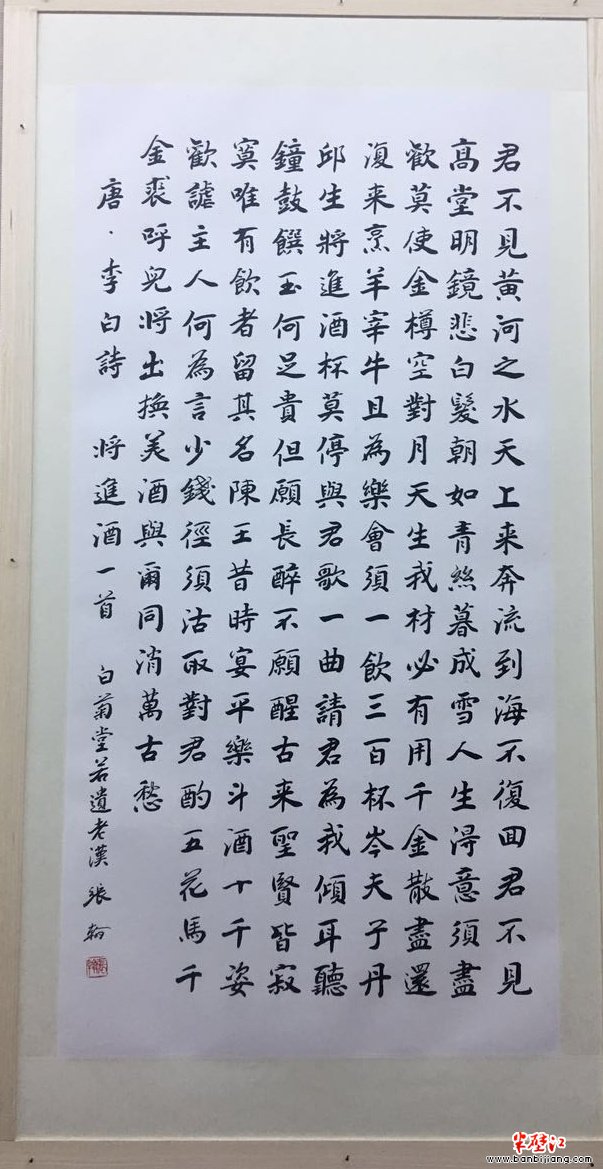 君不見黃河之水天上来奔流到海不復回君不見
高堂明鏡悲白髮朝如青絲暮成雪人生得意須盡
歡莫使金樽空對月天生我材必有用千金散盡還
復来烹羊宰牛且為樂會須一飲三百杯岑夫子丹
邱生將進酒杯莫停與君歌一曲請君為我傾耳聽
鐘鼓饌玉何足貴但願長醉不願醒古来聖賢皆寂
寞唯有飲者留其名陳王昔時宴平樂斗酒十千姿
歡謔主人何為言少錢徑須沽取對君酌五花馬千
金裘呼兒將出換美酒與爾同消萬古愁
唐·李白詩 將進酒一首 白菊堂若遺老漢 張翰
半壁江
www.banbijiang.com